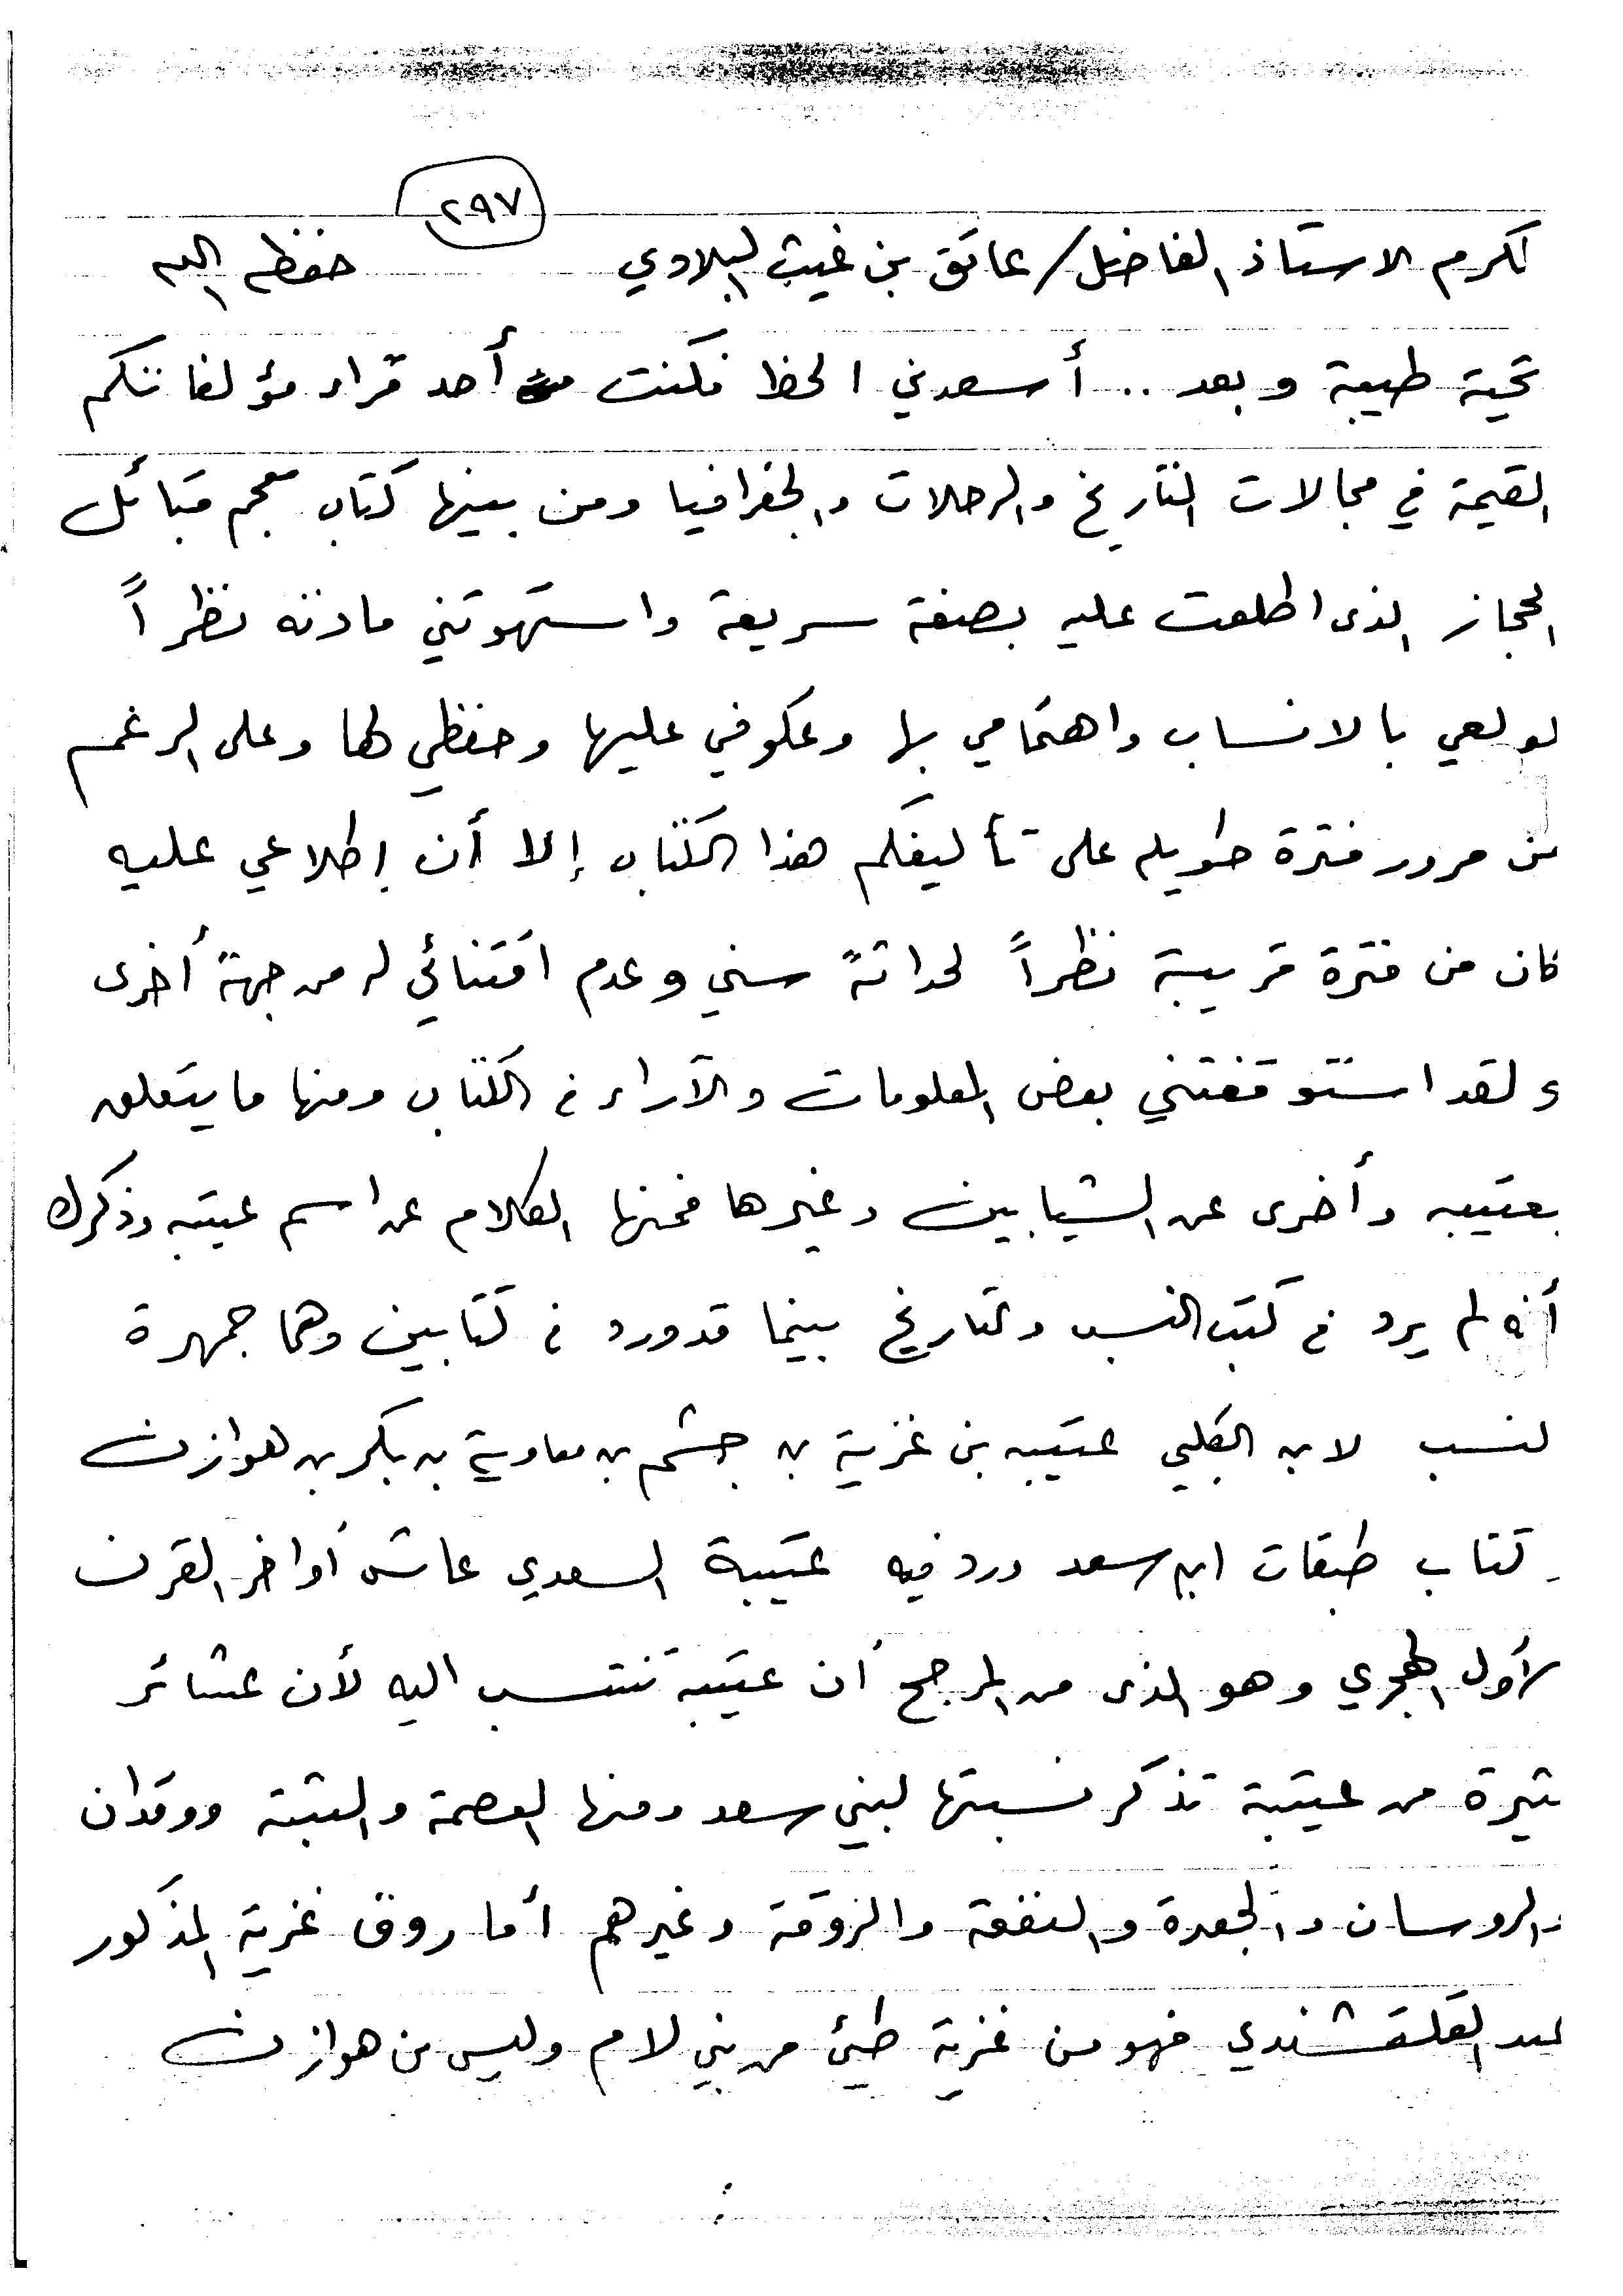 ٢٩٧
لمكرم الاستاذ الفاضل / عاتق بن غيث البلادي حفظه الله
تحية طيبة وبعد .. أسعدني الحظ فكنت أحد قراء مؤلفاتكم
القيمة في مجالات التاريخ والرحلات والجغرافيا ومن بينها كتاب معجم قبائل
الحجاز الذى اطلعت عليه بصفة سريعة واستهوتني مادته نظراً
لولعي بالانساب واهتمامي بها وعكوفي عليها وحفظي لها وعلى الرغم
من مرور فترة طويله على تأليفكم هذا الكتاب إلا أن إطلاعي عليه
كان من فترة قريبة نظراً لحداثة سني وعدم اقتنائي له من جهة أخرى
ولقد استوقفتني بعض المعلومات والآراء في الكتاب ومنها ما يتعلق
بعتيبه وأخرى عن الشيابين وغيرها فمنها الكلام عن اسم عتيبه وذكرك
أنه لم يرد في كتب النسب والتاريخ بينما قد ورد في كتابين وهما جمهرة
لنسب لابن الكلبي عتيبه بن غزية بن جشم بن معاوية بن بكر بن هوازن
كتاب طبقات ابن سعد ورد فيه عتيبة السعدي عاش أواخر القرن
لأول الهجري وهو الذى من المرجح أن عتيبة تنتسب اليه لأن عشائر
ثيرة من عتيبة تذكر نسبتها لبني سعد ومنها العصمة والثبتة ووقدان
والروسان والجعدة والنفعة والزوقة وغيرهم أما روق غزية المذكور
عند القلقشندي فهو من غزية طيئ من بني لام وليس من هوازن